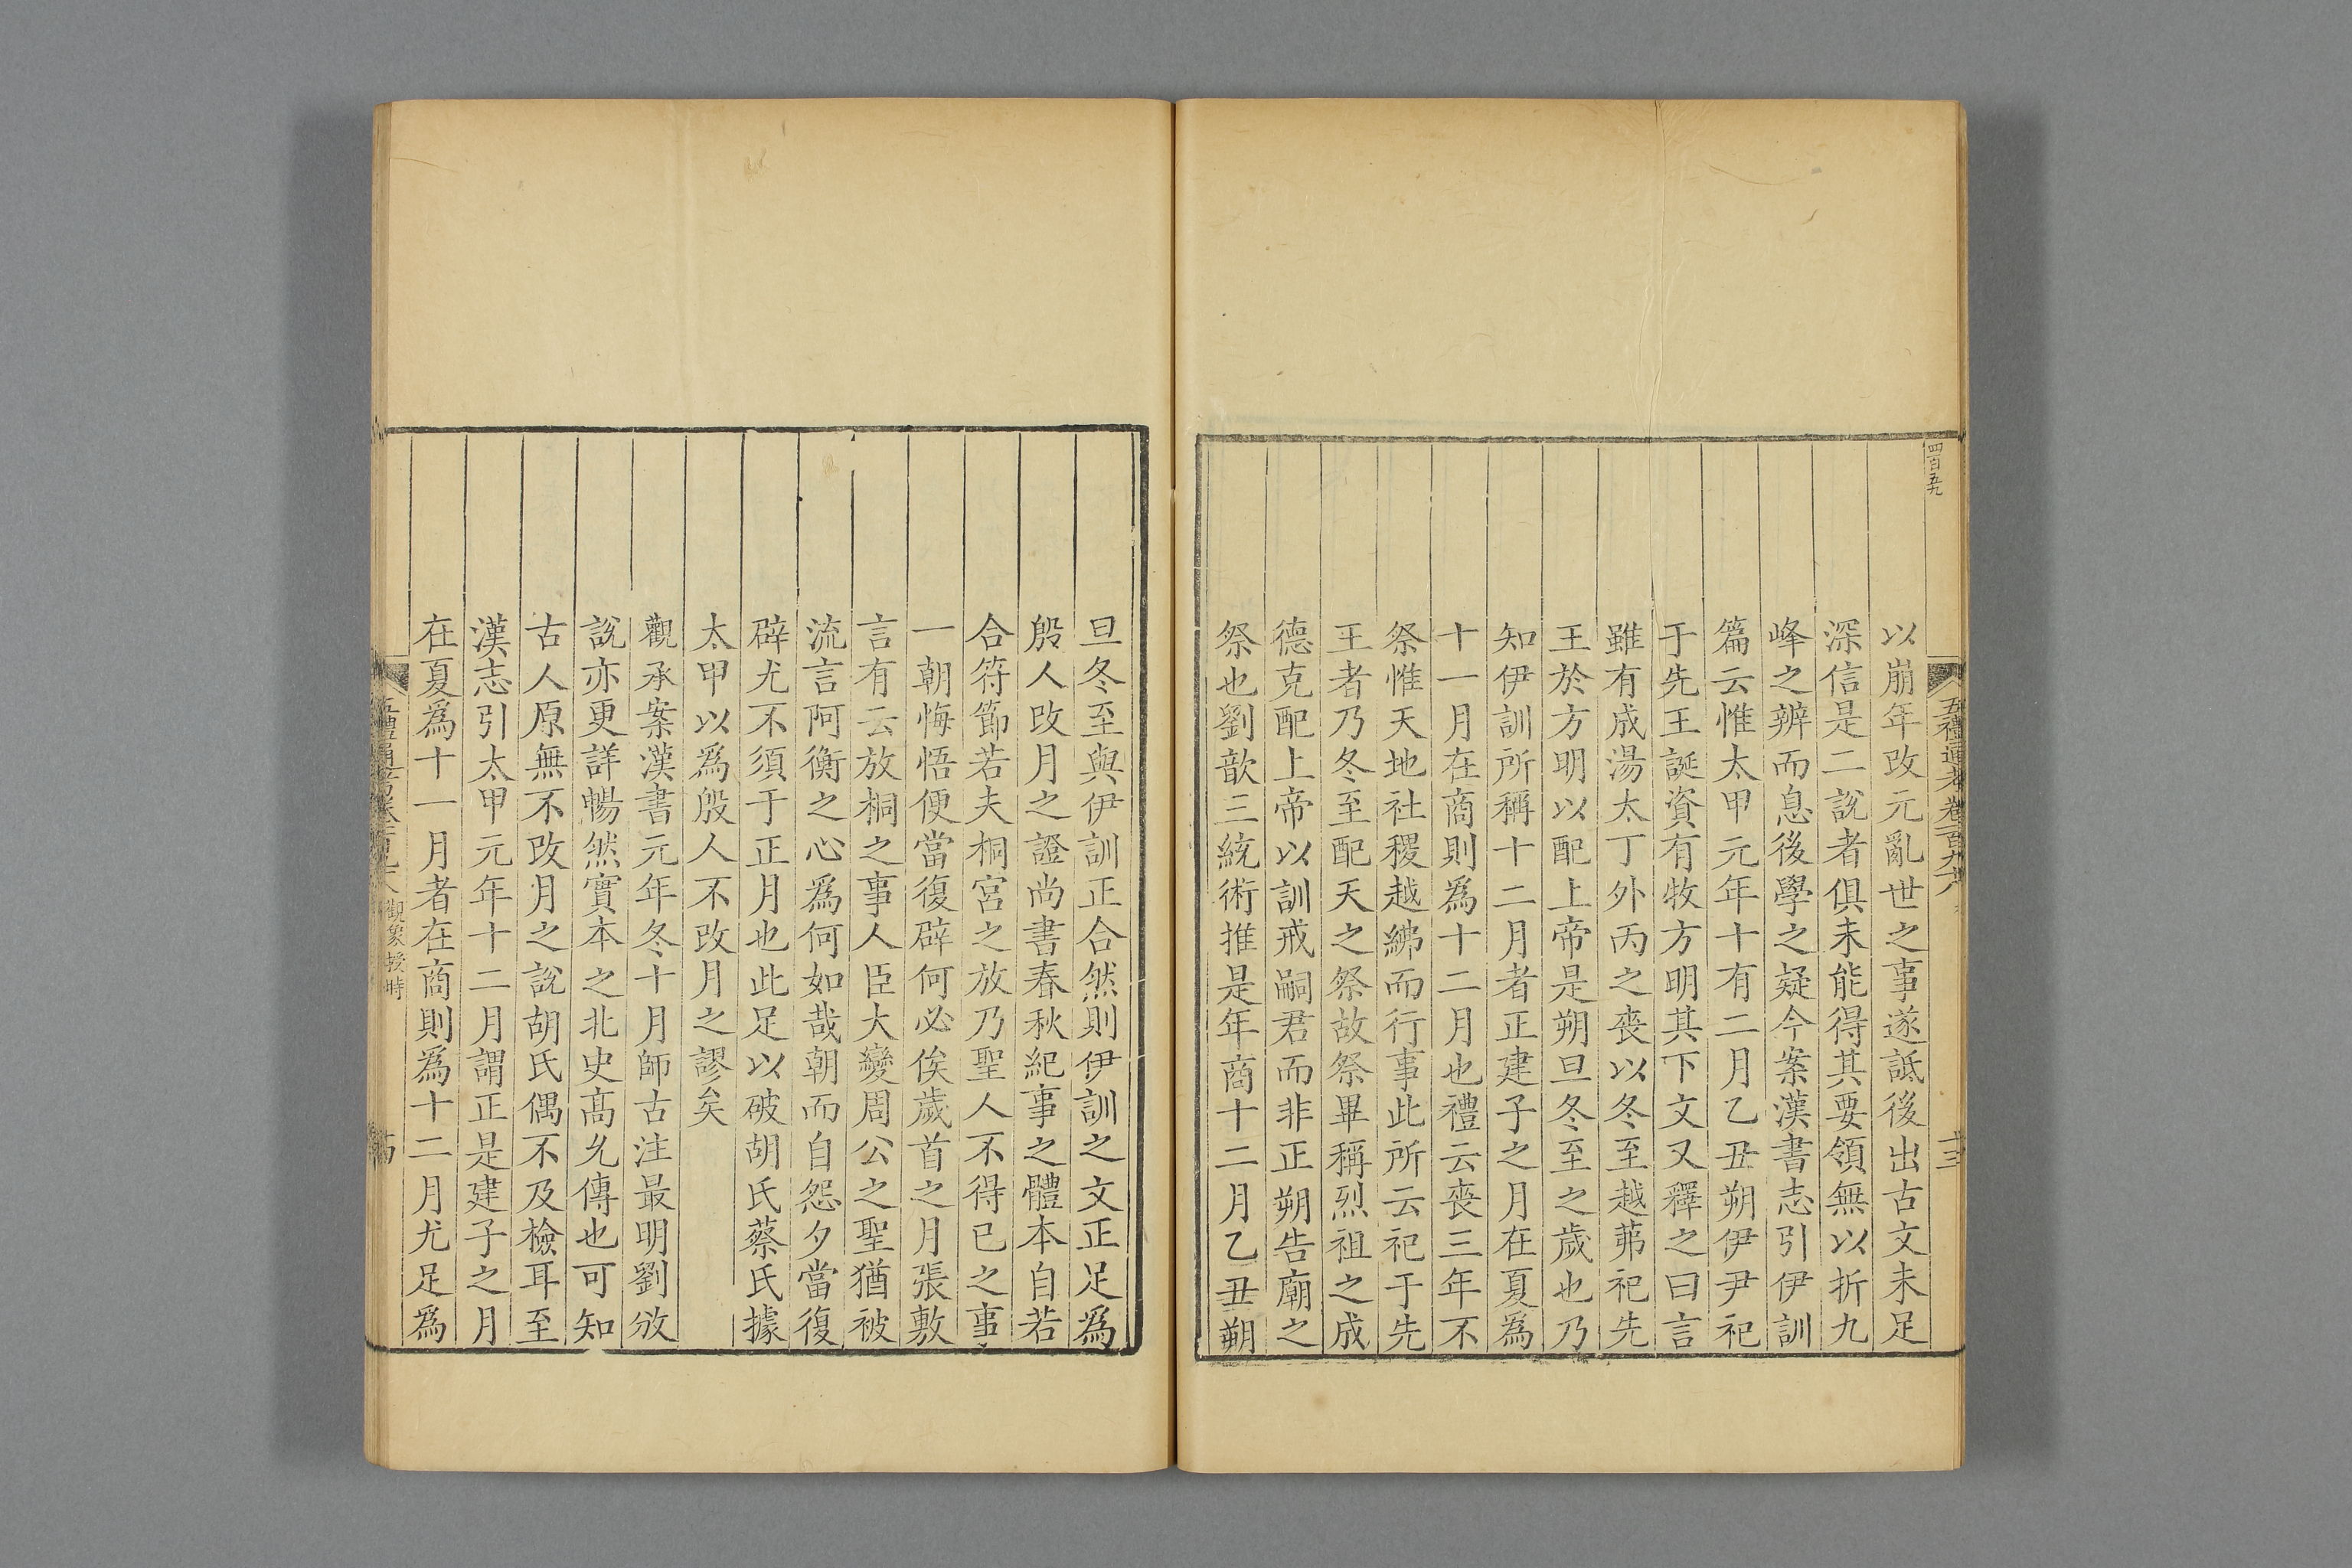 四百五九
五禮通考卷一百九十八
十三
以崩年改元亂世之事遂詆後出古文未足
深信是二說者俱未能得其要領無以折九
峰之辨而息後學之疑今案漢書志引伊訓
篇云惟太甲元年十有二月乙丑朔伊尹祀
于先王誕資有牧方明其下文又釋之曰言
雖有成湯太丁外丙之喪以冬至越茀祀先
王於方明以配上帝是朔旦冬至之歲也乃
知伊訓所稱十二月者正建子之月在夏爲
十一月在商則爲十二月也禮云喪三年不
祭惟天地社稷越紼而行事此所云祀于先
王者乃冬至配天之祭故祭畢稱烈祖之成
德克配上帝以訓戒嗣君而非正朔告廟之
祭也劉歆三統術推是年商十二月乙丑朔
旦冬至與伊訓正合然則伊訓之文正足爲
殷人改月之證尚書春秋紀事之體本自若
合符節若夫桐宮之放乃聖人不得已之事
一朝悔悟便當復辟何必俟歲首之月張敷
言有云放桐之事人臣大變周公之聖猶被
流言阿衡之心爲何如哉朝而自怨夕當復
辟尤不須于正月也此足以破胡氏蔡氏據
太甲以爲殷人不改月之謬矣
觀承案漢書元年冬十月師古注最明劉攽
說亦更詳暢然實本之北史高允傳也可知
古人原無不改月之說胡氏偶不及檢耳至
漢志引太甲元年十二月謂正是建子之月
在夏爲十一月者在商則爲十二月尤足爲
五禮通考卷一百九十八 觀象授時
十四